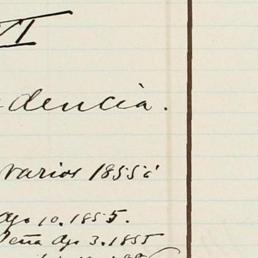 VI
dencia.
varios 1855 i
Ago 10. 1855.
Peña Ago 3. 1855